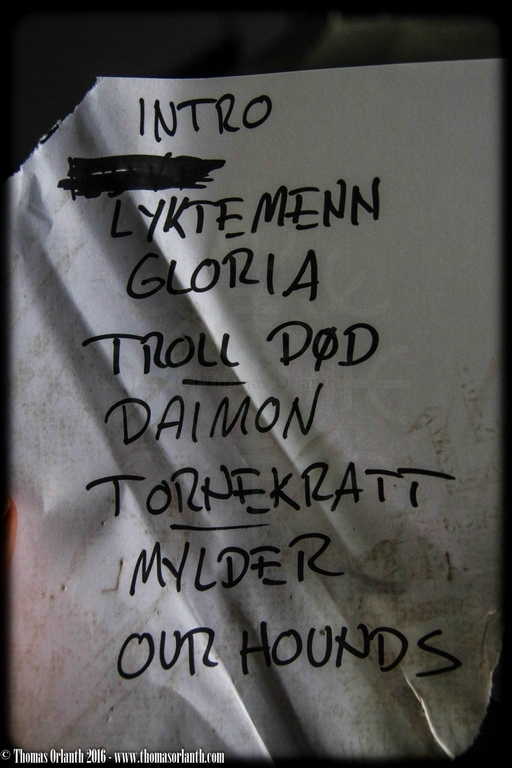 INTRO
LYKTEMENN
GLORIA
TROLL DØD
DAIMON
TORNEKRATT
MYLDER
OUR HOUNDS
© Thomas Orlanth 2016 - www.thomasorlanth.com